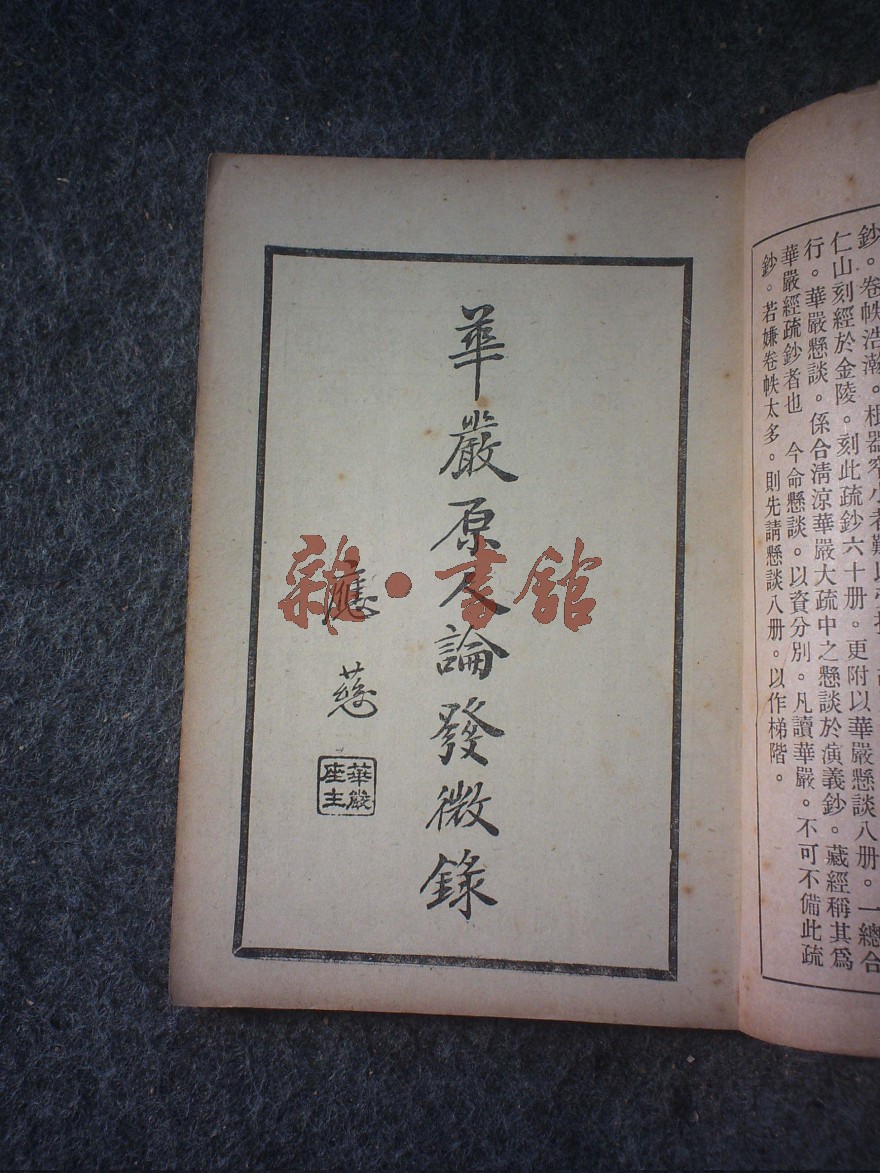 鈔。卷帙浩瀚。根器窄小者難以
仁山刻經於金陵。刻此疏鈔六十册。更附以華嚴懸談八册。一總合
行。華嚴懸談。係合清涼華嚴大疏中之懸談於演義鈔。藏經稱其爲
華嚴經疏鈔者也 今命懸談。以資分別。凡讀華嚴。不可不備此疏
鈔。若嫌卷帙太多。則先請懸談八册。以作梯階。
華嚴原人論發微錄
應慈
華嚴
座主
雜·書館